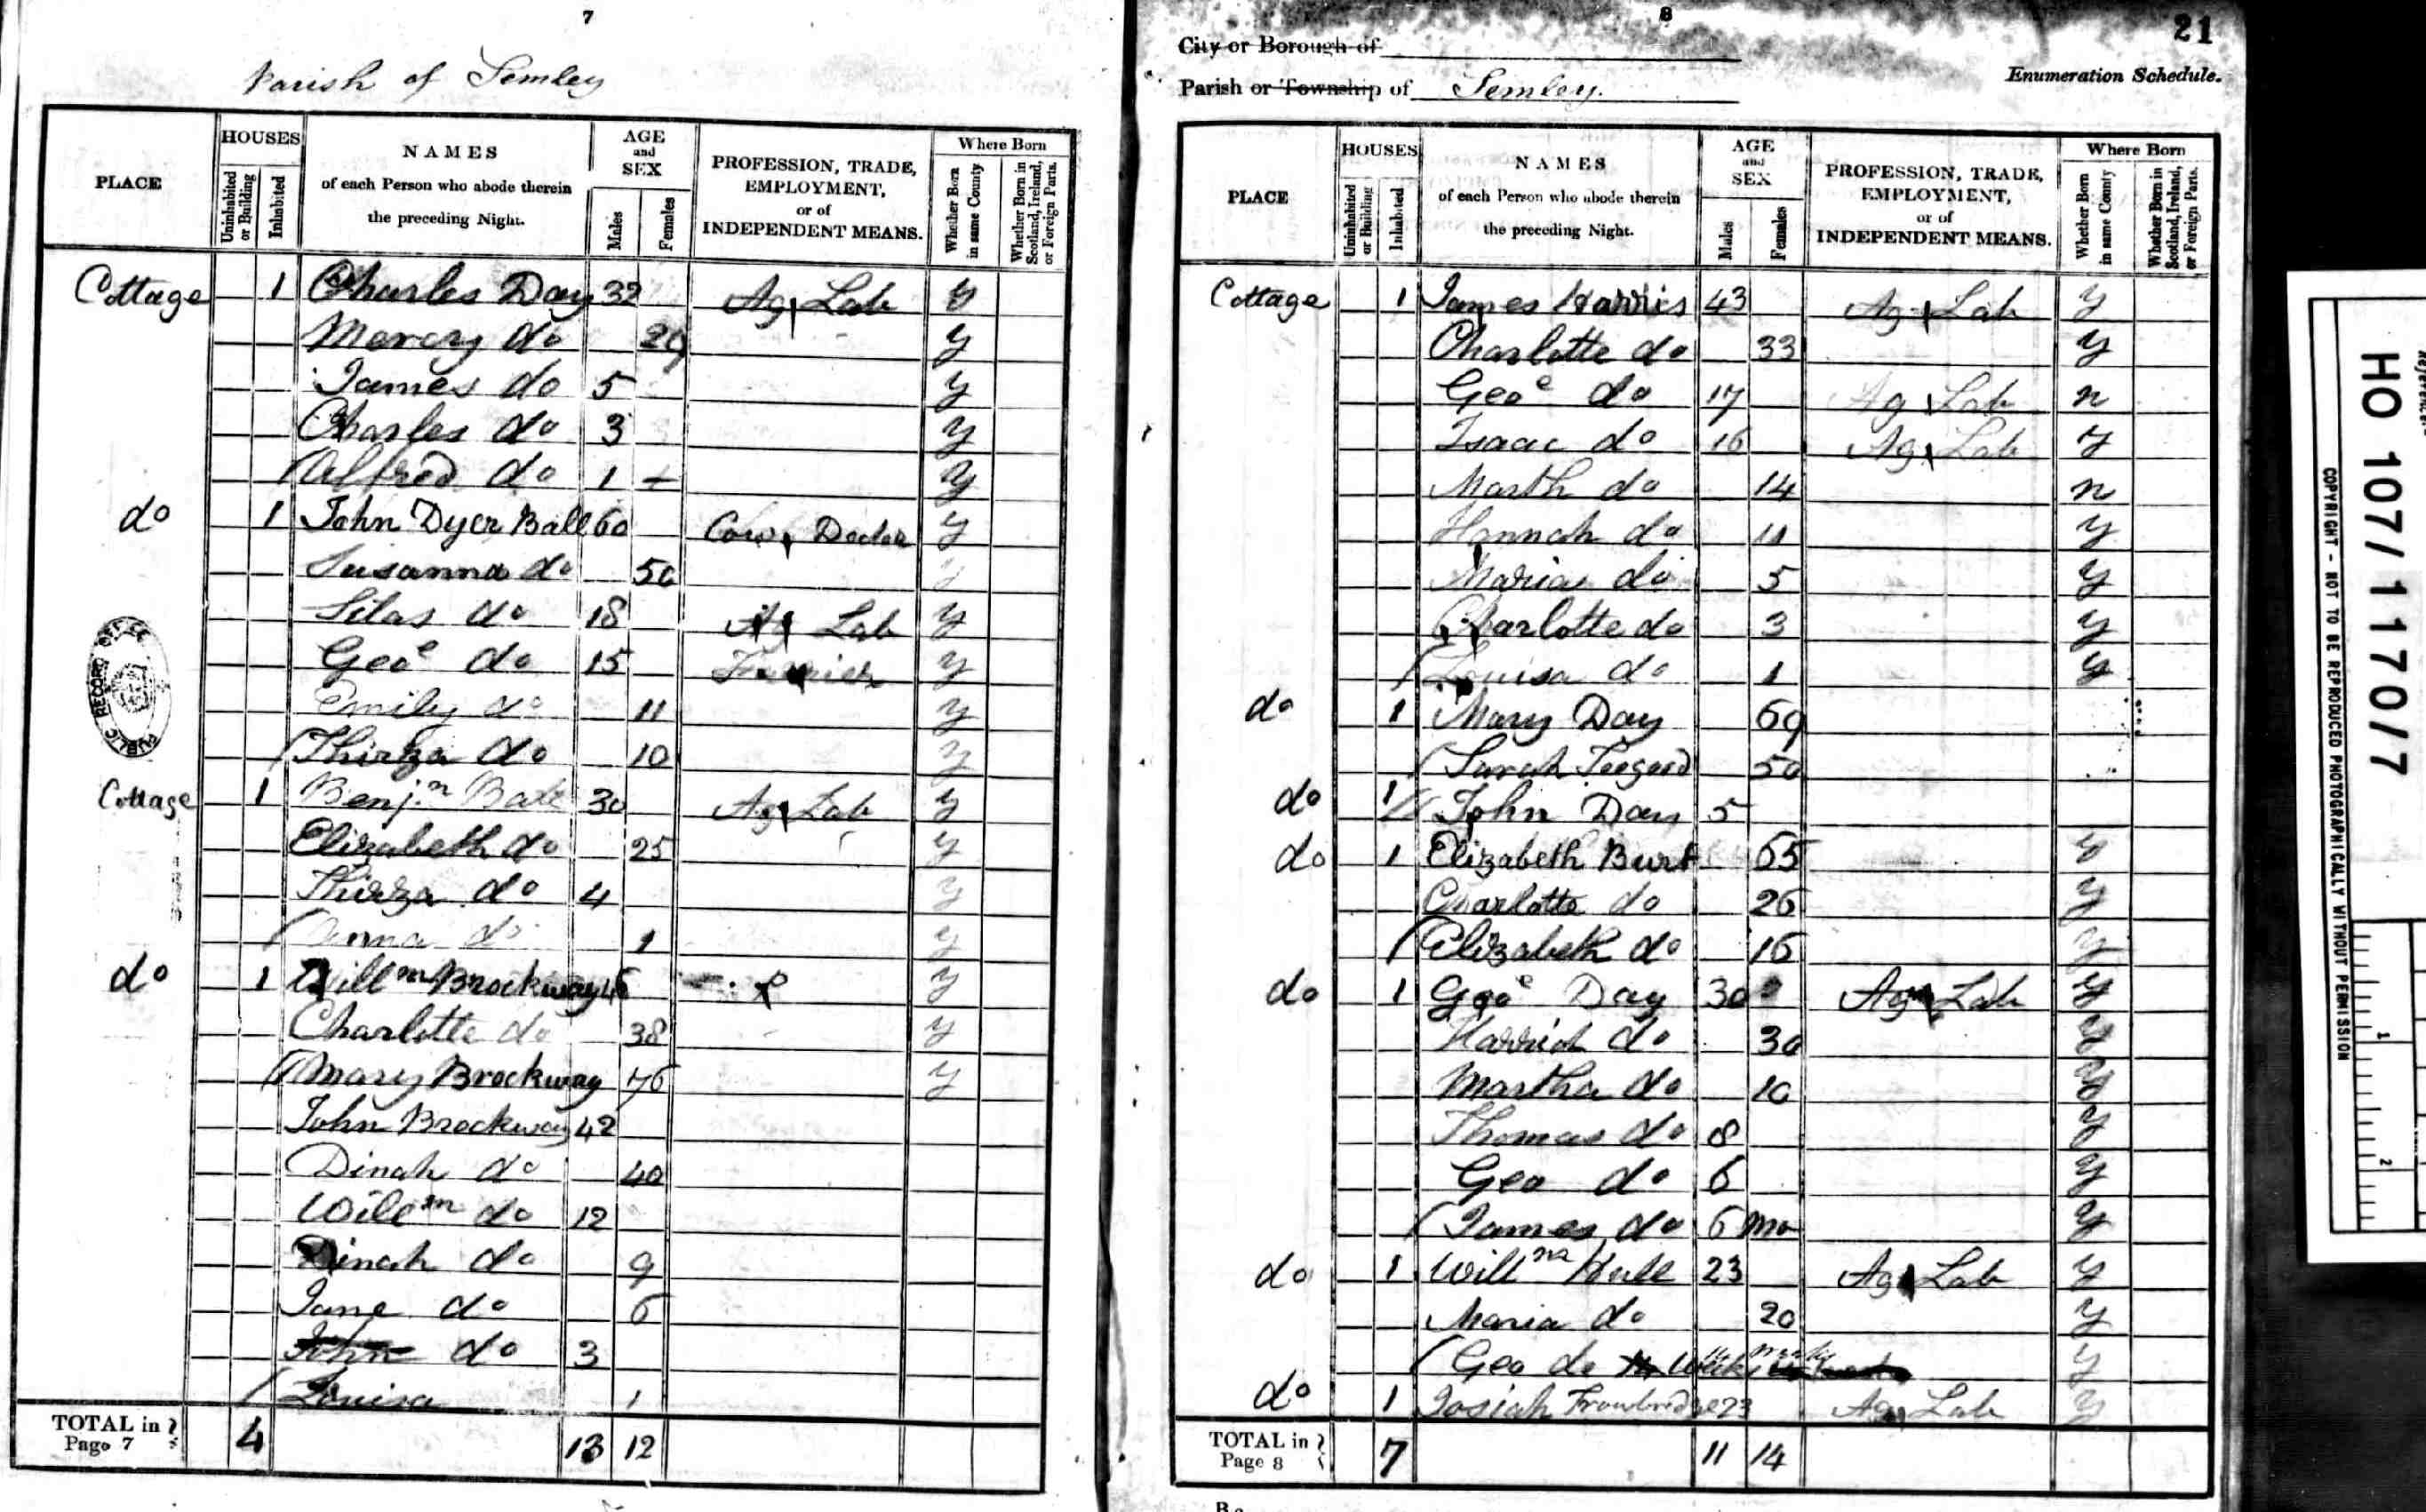 7
Parish of Semley
PLACE
HOUSES
Uninhabited or Building
Inhabited
NAMES
of each Person who abode therein
the preceding Night.
AGE
and
SEX
Males
Females
PROFESSION, TRADE,
EMPLOYMENT,
or of
INDEPENDENT MEANS.
Where Born
Whether Born in same County
Whether Born in Scotland, Ireland, or Foreign Parts.
Cottage 1 Charles Day 32 Ag Lab y
Mercy do 29 y
James do 5 y
Charles do 3 y
Alfred do 1 y
do 1 John Dyer Ball 60 Cow Doctor y
Susanna do 50 y
Silas do 18 Ag Lab y
Geoe do 15 y
Emily do 11 y
Thirza do 10 y
Cottage 1 Benjn 30 Ag Lab y
Elizabeth do 25 y
Thirza do 4 y
Anna do 1 y
do 1 Willm Brockway 46 y
Charlotte do 38 y
Mary Brockway 76 y
John Brockway 42
Dinah do 40
Willm do 12
Dinah do 9
Jane do 6
John do 3
Louisa 1
TOTAL in
Page 7
4 13 12
PUBLIC RECORD OFFICE
8
21
City or Borough of
Enumeration Schedule.
Parish or Township of Semley.
PLACE
HOUSES
Uninhabited or Building
Inhabited
NAMES
of each Person who abode therein
the preceding Night.
AGE
and
SEX
Males
Females
PROFESSION, TRADE,
EMPLOYMENT,
or of
INDEPENDENT MEANS.
Where Born
Whether Born in same County
Whether Born in Scotland, Ireland, or Foreign Parts.
Cottage 1 James Harris 43 Ag Lab y
Charlotte do 33 y
Geoe do 17 Ag Lab n
Isaac do 16 Ag Lab y
Marth do 14 n
Hannah do 11 y
Maria do 5 y
Charlotte do 3 y
Louisa do 1 y
do 1 Mary Day 69
Sarah 50
do 1 John Day 5
do 1 Elizabeth Burt 65 y
Charlotte do 26 y
Elizabeth do 16 y
do 1 Geoe Day 30 Ag Lab y
Harriet do 30 y
Martha do 10 y
Thomas do 8 y
Geo do 6 y
James do 6 mo y
do 1 Willm 23 Ag Lab y
Maria do 20 y
Geo do y
do 1 Josiah Trowbridge 23 Ag Lab y
TOTAL in
Page 8
7 11 14
HO 107/1170/7
COPYRIGHT - NOT TO BE REPRODUCED PHOTOGRAPHICALLY WITHOUT PERMISSION
1
2